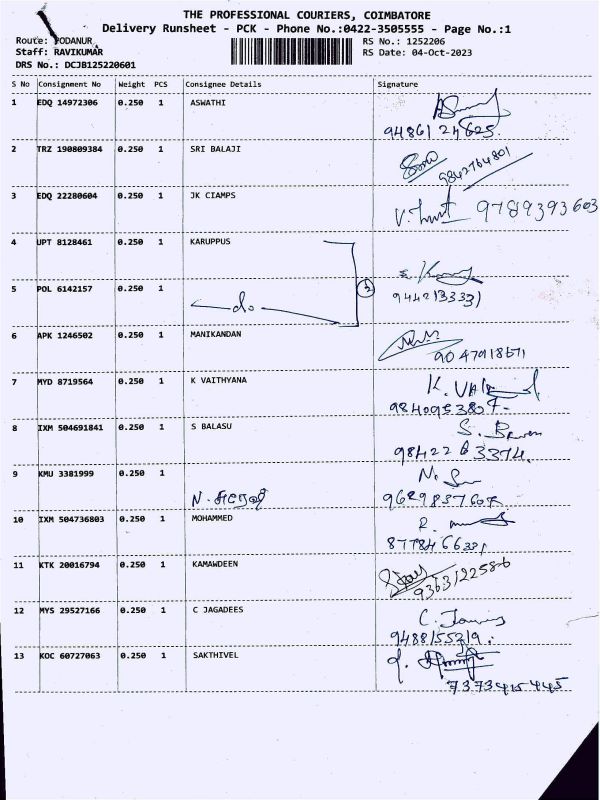 THE PROFESSIONAL COURIERS, COIMBATORE
Delivery Runsheet - PCK - Phone No.:0422-3505555 - Page No.:1
Route: PODANUR
RS No.: 1252206
Staff: RAVIKUMAR
RS Date: 04-Oct-2023
DRS No.: DCJB125220601
S No Consignment No Weight PCS Consignee Details Signature
1 EDQ 14972306 0.250 1 ASWATHI
94861 24625
2 TRZ 190809384 0.250 1 SRI BALAJI
9842764801
3 EDQ 22280604 0.250 1 JK CIAMPS
9789393603
4 UPT 8128461 0.250 1 KARUPPUS
5 POL 6142157 0.250 1 do 2
9442133331
6 APK 1246502 0.250 1 MANIKANDAN
7 MYD 8719564 0.250 1 K VAITHYANA
8 IXM 504691841 0.250 1 S BALASU
98422 63374
9 KMU 3381999 0.250 1
9629857607
10 IXM 504736803 0.250 1 MOHAMMED
11 KTK 20016794 0.250 1 KAMAWDEEN
9363122586
12 MYS 29527166 0.250 1 C JAGADEES
9488155219
13 KOC 60727063 0.250 1 SAKTHIVEL
7373415445